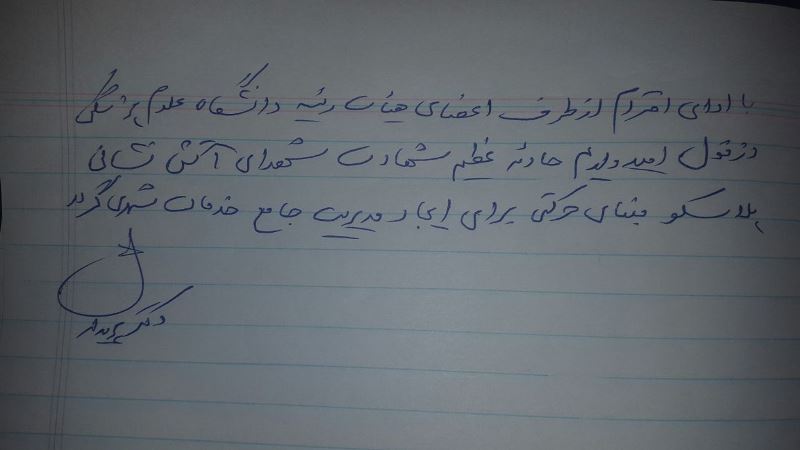 با ادای احترام از طرف اعضای هیأت رئیسه دانشگاه علوم پزشکی
دزفول امیدوارم حادثه عظیم شهادت شهدای آتش نشانی
پلاسکو مبنای حرکتی برای ایجاد مدیریت جامع خدمات شهری گردد
دکتر